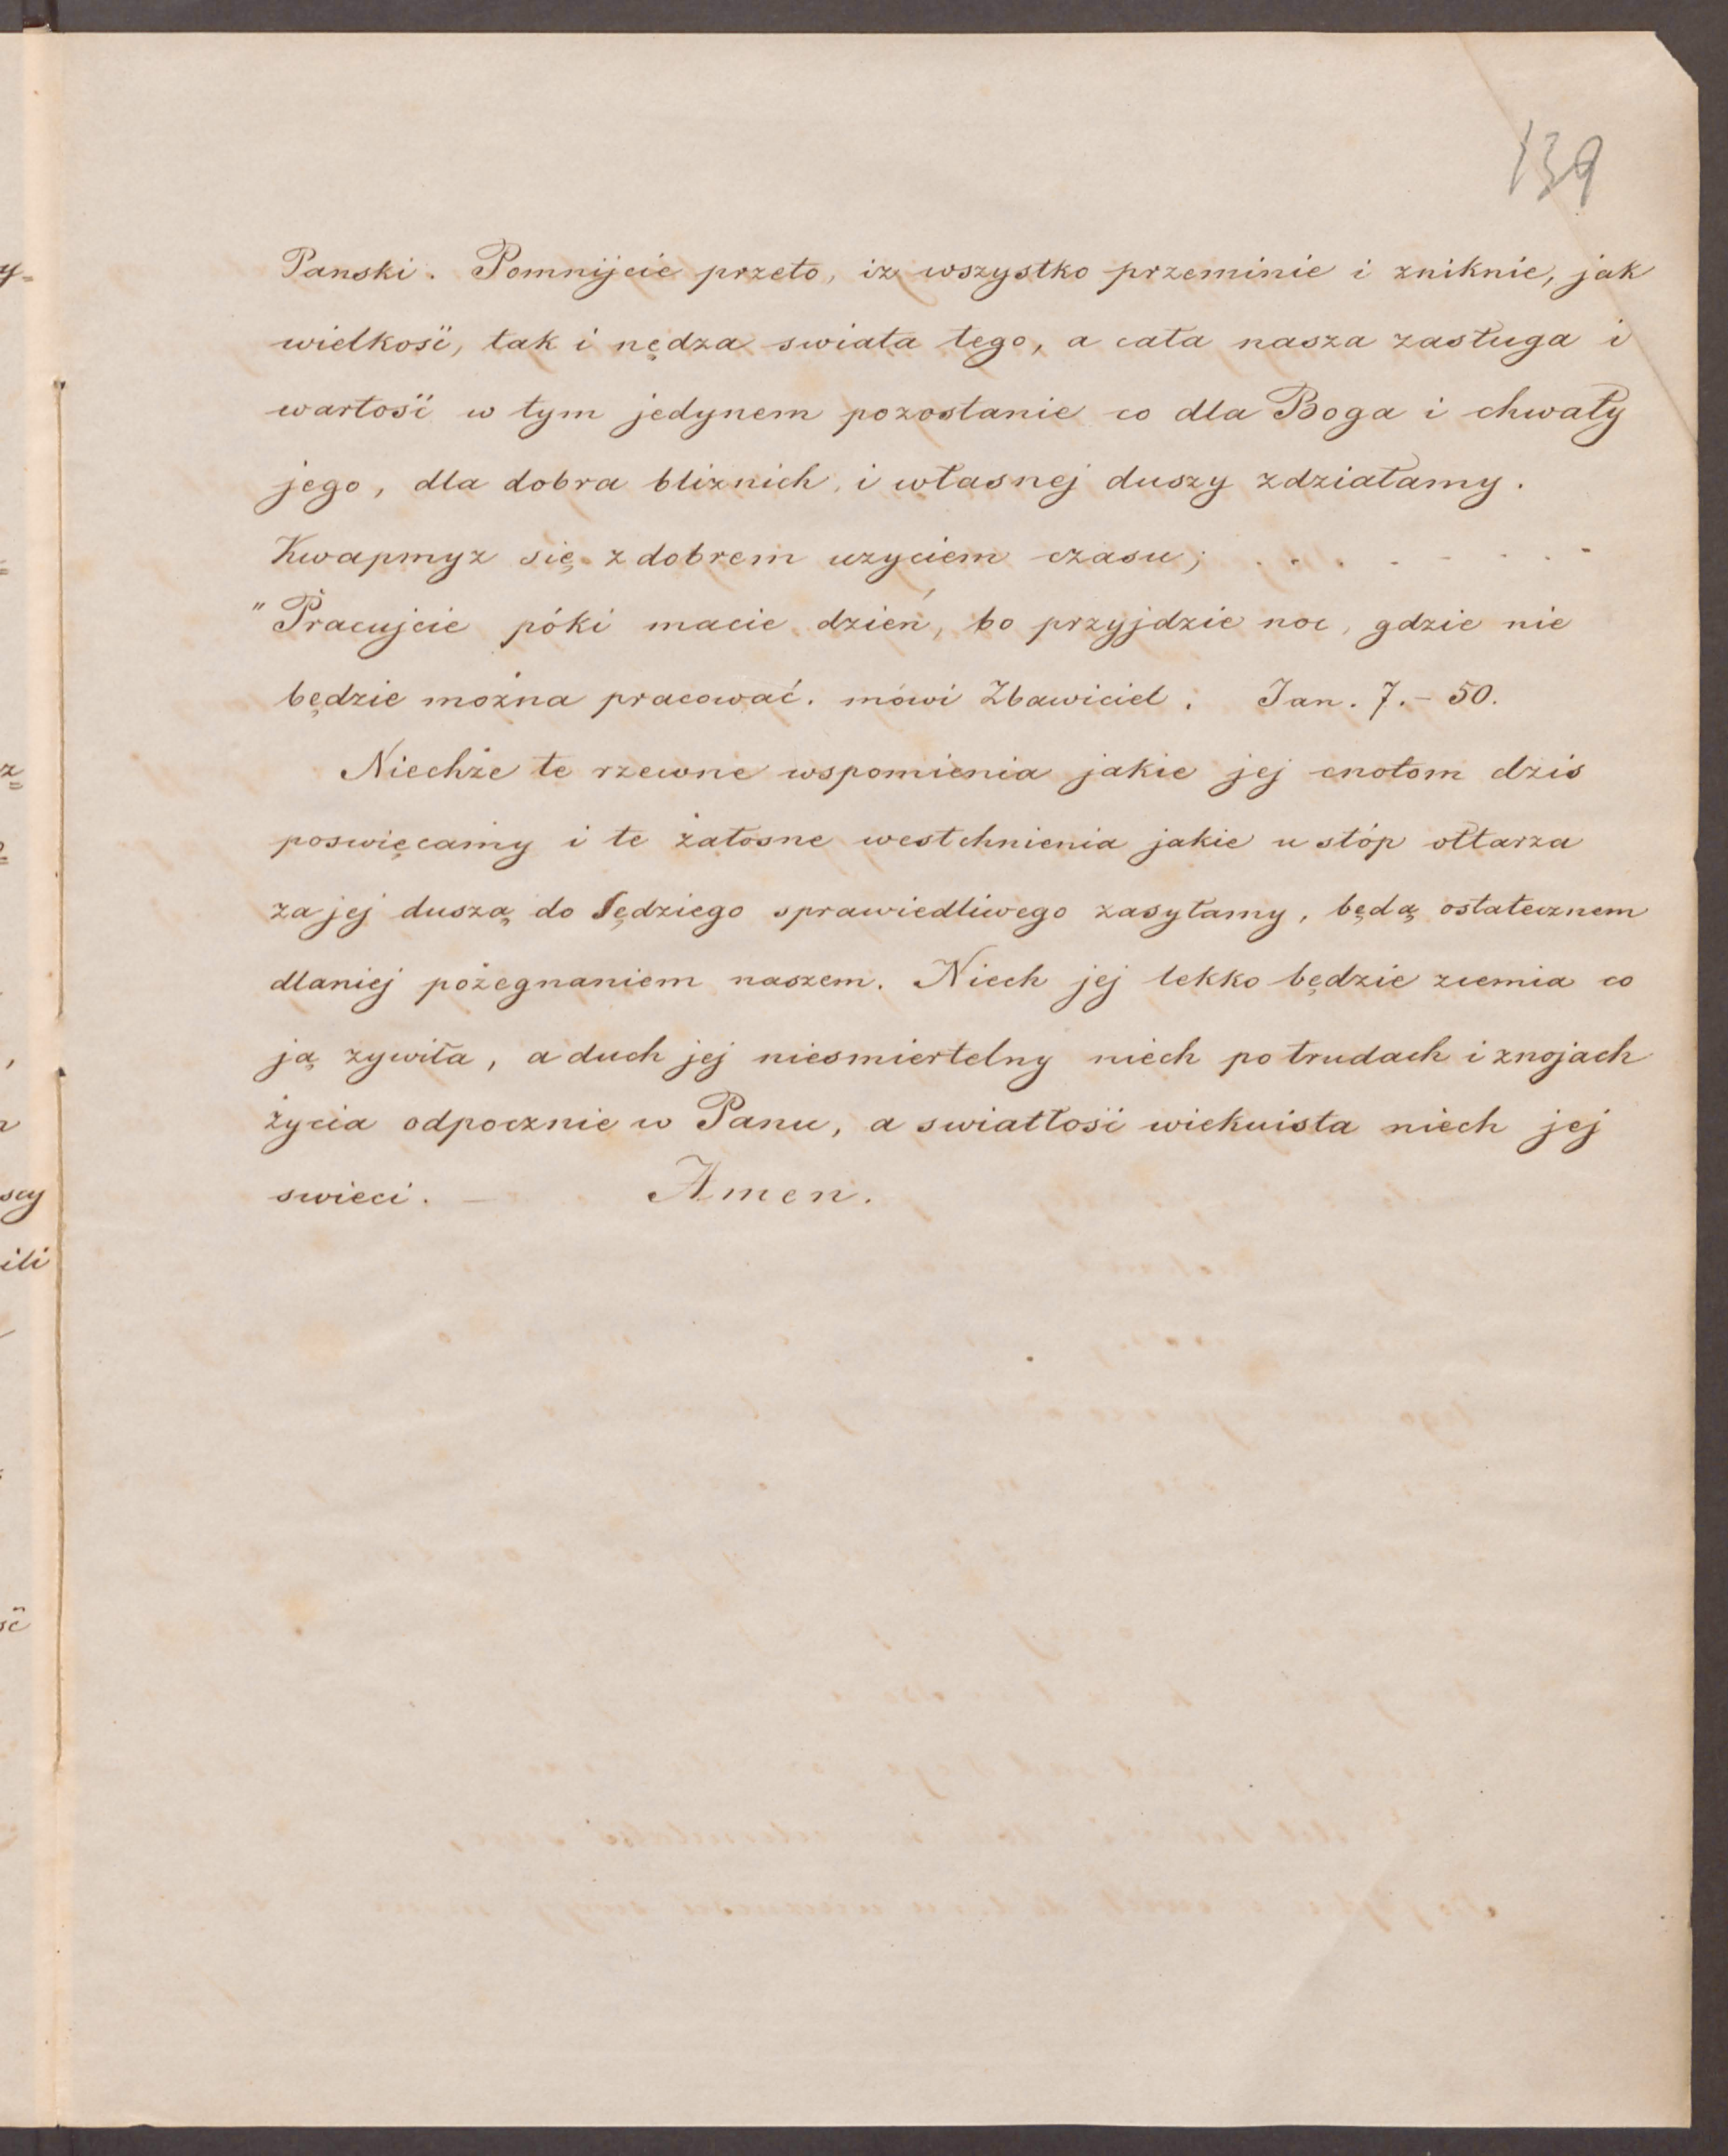 139
Panski. Pomnijcie przeto, iz wszystko przeminie i zniknie, jak
wielkość, tak i nędza swiata tego, a cała nasza zasługa i
wartość w tym jedynem pozostanie co dla Boga i chwały
jego, dla dobra bliznich, i własnej duszy zdziałamy.
Kwapmyz się z dobrem uzyciem czasu; . . . . - . . .
"Pracujcie póki macie dzień, bo przyjdzie noc, gdzie nie
będzie można pracować. mówi Zbawiciel. Jan. 7. - 50.
Niechże te rzewne wspomienia jakie jej cnotom dzis
poswięcamy i te żałosne westchnienia jakie u stóp ołtarza
za jej duszą do Sędziego sprawiedliwego zasyłamy, będą ostatecznem
dlaniej pożegnaniem naszem. Niech jej lekko będzie ziemia co
ją zywiła, a duch jej niesmiertelny niech po trudach i znojach
życia odpocznie w Panu, a swiatłość wiekuista niech jej
swieci. — Amen.